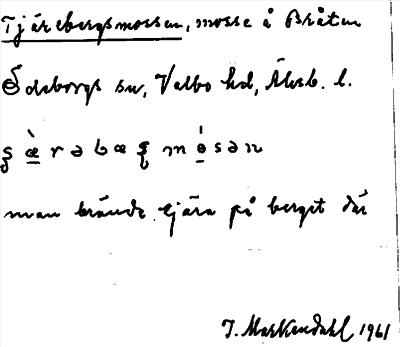 Tjärebergsmossen, mosse å Bråten
Ödeborgs sn, Valbo hd, Älvsb. l.
man brände tjära på berget där
J. Markendahl 1961